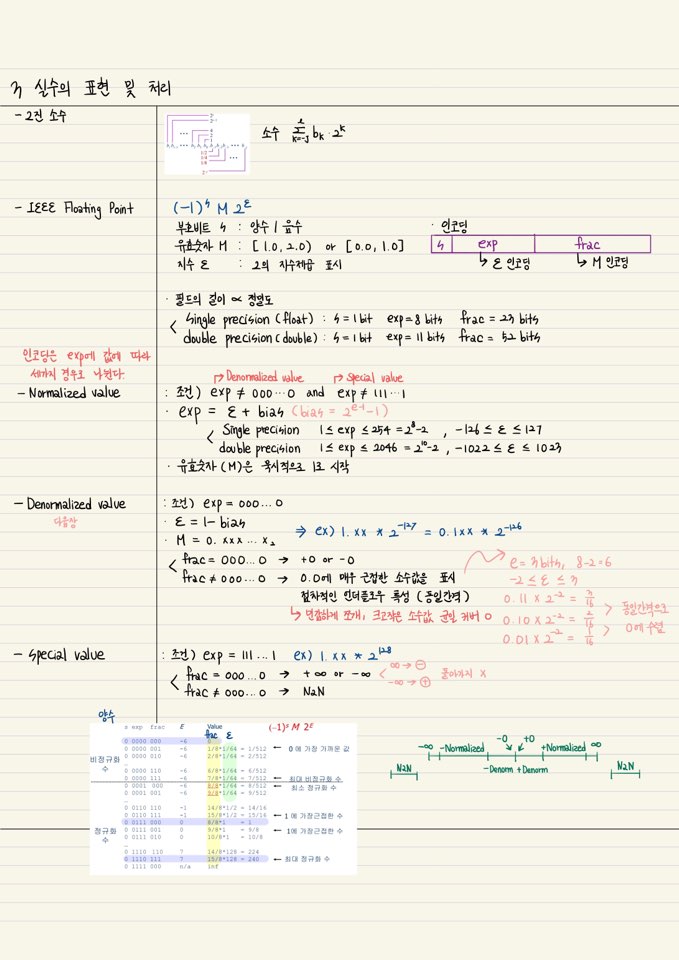 3 실수의 표현 및 처리
- 2진 소수
소수 Σ k=-j bk · 2^k
- IEEE Floating Point
(-1)^s M 2^E
부호비트 s : 양수 / 음수
유효숫자 M : [1.0, 2.0) or [0.0, 1.0]
지수 E : 2의 지수제곱 표시
· 인코딩
s exp frac
↳ E 인코딩 ↳ M 인코딩
· 필드의 길이 ∝ 정밀도
< single precision (float) : s = 1 bit exp = 8 bits frac = 23 bits
double precision (double) : s = 1 bit exp = 11 bits frac = 52 bits
인코딩은 exp에 값에 따라
세가지 경우로 나뉜다.
Denormalized value Special value
- Normalized value
: 조건) exp ≠ 000...0 and exp ≠ 111...1
· exp = E + bias (bias = 2^(e-1) -1)
< Single precision 1 ≤ exp ≤ 254 = 2^8-2 , -126 ≤ E ≤ 127
double precision 1 ≤ exp ≤ 2046 = 2^10-2 , -1022 ≤ E ≤ 1023
· 유효숫자 (M)은 묵시적으로 1로 시작
- Denormalized value
: 조건) exp = 000...0
· E = 1- bias
· M = 0. xxx ... x₂
⇒ ex) 1.xx * 2^-127 = 0.1xx * 2^-126
< frac = 000...0 → +0 or -0
frac ≠ 000...0 → 0.0에 매우 근접한 소수값을 표시
점차적인 언더플로우 특성 (동일간격)
e = 3 bits, 8-2=6
-2 ≤ E ≤ 3
0.11 × 2^-2 = 3/16
0.10 × 2^-2 = 2/16
0.01 × 2^-2 = 1/16
> 동일간격으로
> 0에 수렴
- Special value
: 조건) exp = 111 ... 1 ex) 1.xx * 2^128
< frac = 000...0 → +∞ or -∞
frac ≠ 000...0 → NaN
< ∞ → ⊖
-∞ → ⊕
양수
(-1)^s M 2^E
s exp frac E Value
frac E
0 0000 000 -6 0
0 0000 001 -6 1/8*1/64 = 1/512 ← 0에 가장 가까운 값
0 0000 010 -6 2/8*1/64 = 2/512
…
비정규화 수
0 0000 110 -6 6/8*1/64 = 6/512
0 0000 111 -6 7/8*1/64 = 7/512 ← 최대 비정규화 수
0 0001 000 -6 8/8*1/64 = 8/512 ← 최소 정규화 수
0 0001 001 -6 9/8*1/64 = 9/512
…
0 0110 110 -1 14/8*1/2 = 14/16
0 0110 111 -1 15/8*1/2 = 15/16 ← 1에 가장근접한 수
0 0111 000 0 8/8*1 = 1
정규화 수
0 0111 001 0 9/8*1 = 9/8 ← 1에 가장근접한 수
0 0111 010 0 10/8*1 = 10/8
…
0 1110 110 7 14/8*128 = 224
0 1110 111 7 15/8*128 = 240 ← 최대 정규화 수
0 1111 000 n/a inf
-0 +0
-∞ -Normalized +Normalized ∞
NaN -Denorm +Denorm NaN